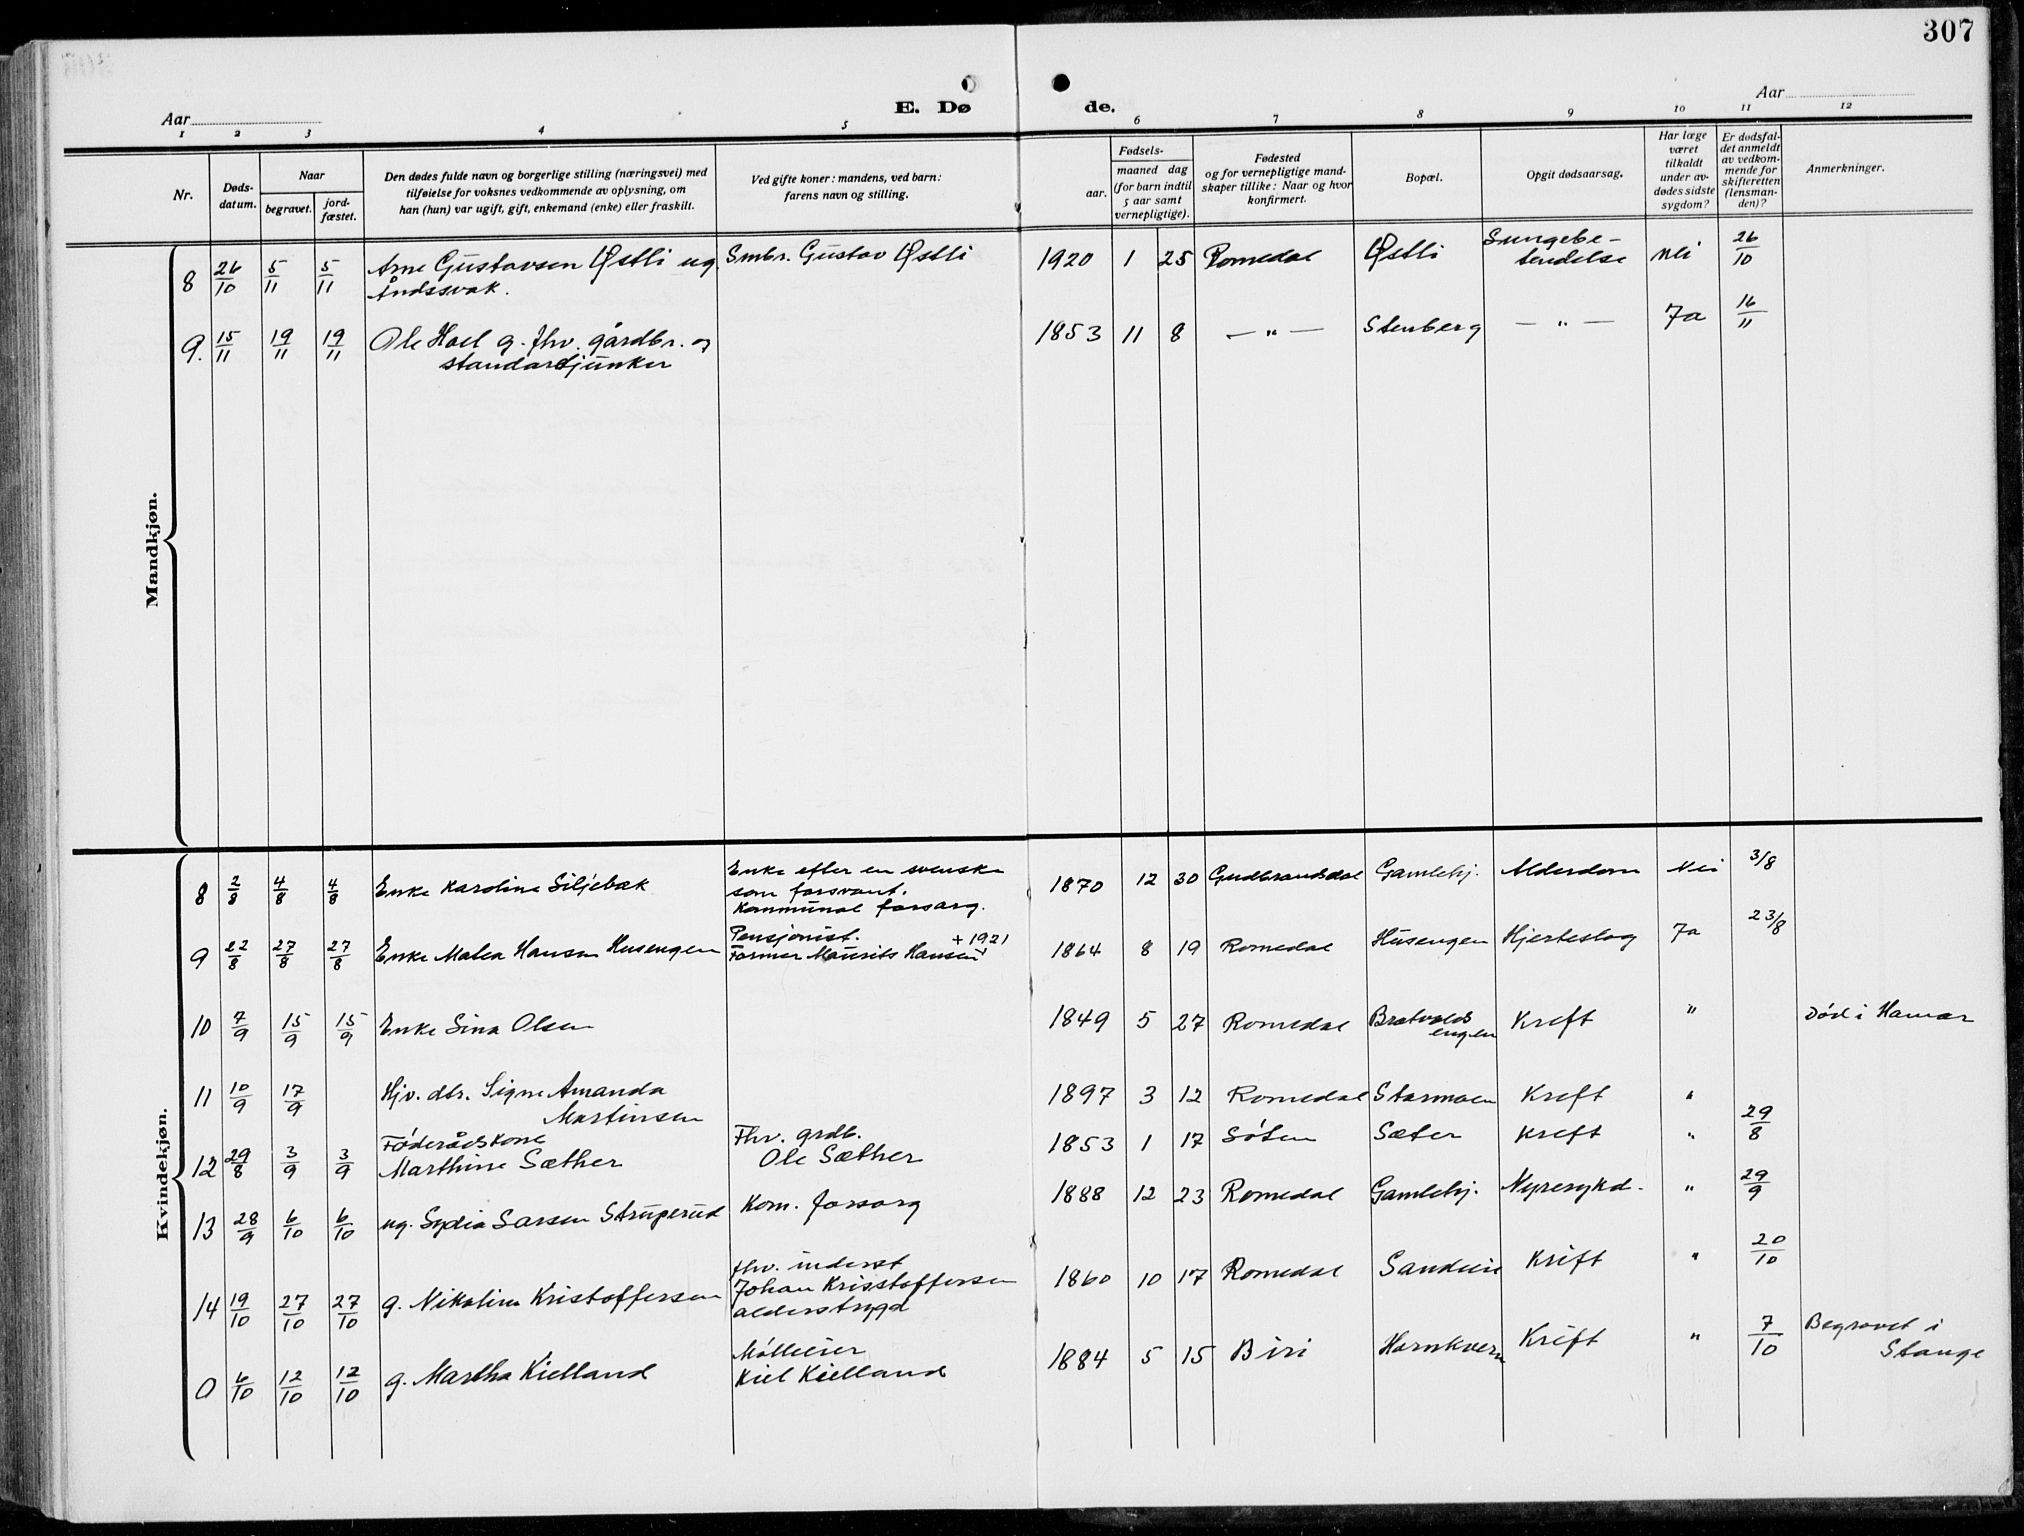 307
E. Døde.
Aar
Aar
1 2 3 4 5 6 7 8 9 10 11 12
Nr.
Døds-
datum.
Naar
begravet.
jord-
fæstet.
Den dødes fulde navn og borgerlige stilling (næringsvei) med
tilføielse for voksnes vedkommende av oplysning, om
han (hun) var ugift, gift, enkemand (enke) eller fraskilt.
Ved gifte koner: mandens, ved barn:
farens navn og stilling.
Fødsels-
aar.
maaned dag
(for barn indtil
5 aar samt
vernepligtige).
Fødested
og for vernepligtige mand-
skaper tillike: Naar og hvor
konfirmert.
Bopæl.
Opgit dødsaarsag.
Har læge
været
tilkaldt
under av-
dødes sidste
sygdom?
Er dødsfal-
det anmeldt
av vedkom-
mende for
skifteretten
(lensman-
den)?
Anmerkninger.
Mandkjøn.
8 26/10 5/11 5/11 Arne Gustavsen Østli ug. Smbr. Gustav Østli 1920 1 25 Romedal Østli Lungebe- nei 26/10
Åndssvak. tendelse
9. 15/11 19/11 19/11 Ole Hoel g. fhv. gårdbr. og 1853 11 8 — " — Stenberg — " — Ja 16/11
standardjunker
Kvindekjøn.
8 2/8 4/8 4/8 Enke Karoline Siljebak Enke efter en svenske 1870 12 30 Gudbrandsdal Gamlehj. Alderdom Nei 3/8
som forsvant.
Kommunal forsorg.
9 22/8 27/8 27/8 Enke Malea Hansen Husengen Pensjonist. +1921 1864 8 19 Romedal Husengen Hjerteslag Ja 23/8
Farmer Maurits Hansen
10 7/9 15/9 15/9 Enke Sina Olsen 1849 5 27 Romedal Bratvolds Kreft " Død i Hamar
engen
11 10/9 17/9 Hjv. dtr. Signe Amanda 1897 3 12 Romedal Starmoen Kreft "
Martinsen
12 29/8 3/9 3/9 Føderådskone Fhv. grdb. 1853 1 17 Løten Sæter Kreft " 29/8
Marthine Sæther Ole Sæther
13 28/9 6/10 6/10 ug. Lydia Larsen Struperud Kom. forsorg 1888 12 23 Romedal Gamlehj. Nyresykd. " 29/9
14 19/10 27/10 27/10 g. Nikoline Kristoffersen fhv. inderst 1860 10 17 Romedal Kreft " 20/10
Johan Kristoffersen
alderstrygd
0 6/10 12/10 12/10 g. Martha Kielland Mølleeier 1884 5 15 Biri Hornkvern Kreft " 7/10 Begravet i
Kiel Kielland Stange